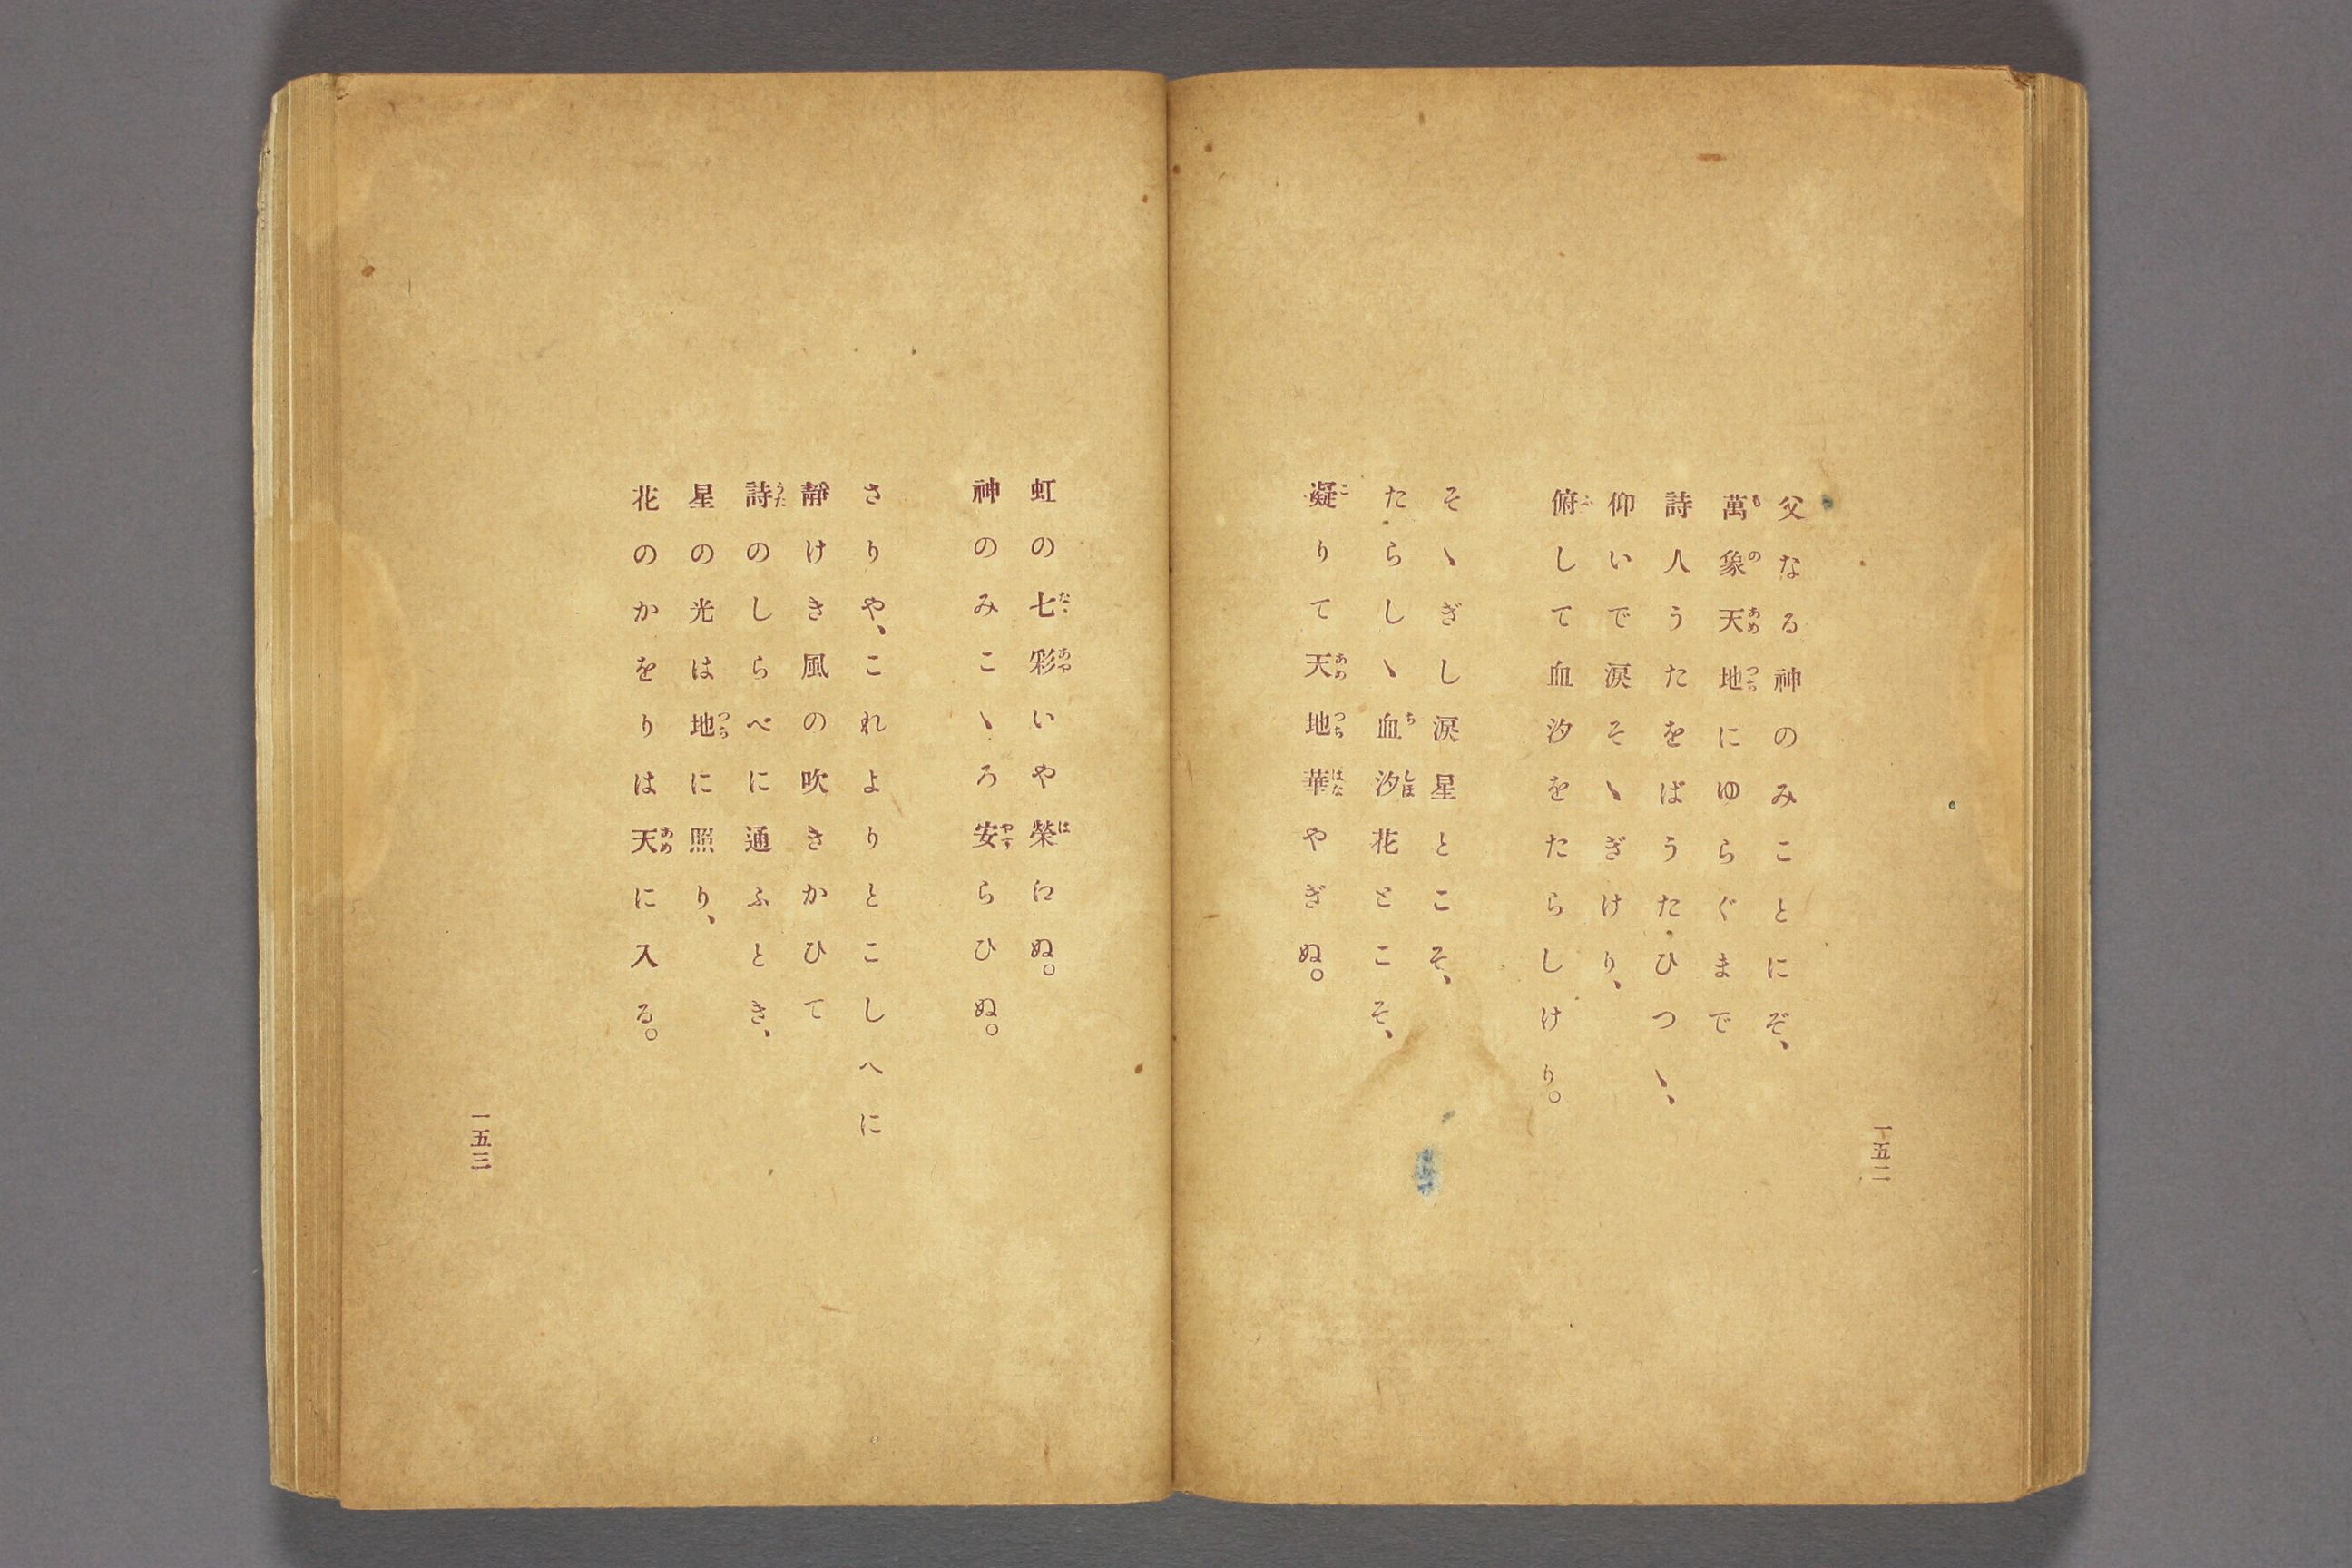 父なる神のみことにぞ、
萬象天地にゆらぐまで
詩人うたをばうたひつヽ、
仰いで涙そヽぎけり、
俯して血汐をたらしけり。
そヽぎし涙星とこそ、
たらしヽ血汐花とこそ、
凝りて天地華やぎぬ。
一五二
虹の七彩いや榮にぬ。
神のみこヽろ安らひぬ。
さりや、これよりとこしへに
靜けき風の吹きかひて
詩のしらべに通ふとき、
星の光は地に照り、
花のかをりは天に入る。
一五三